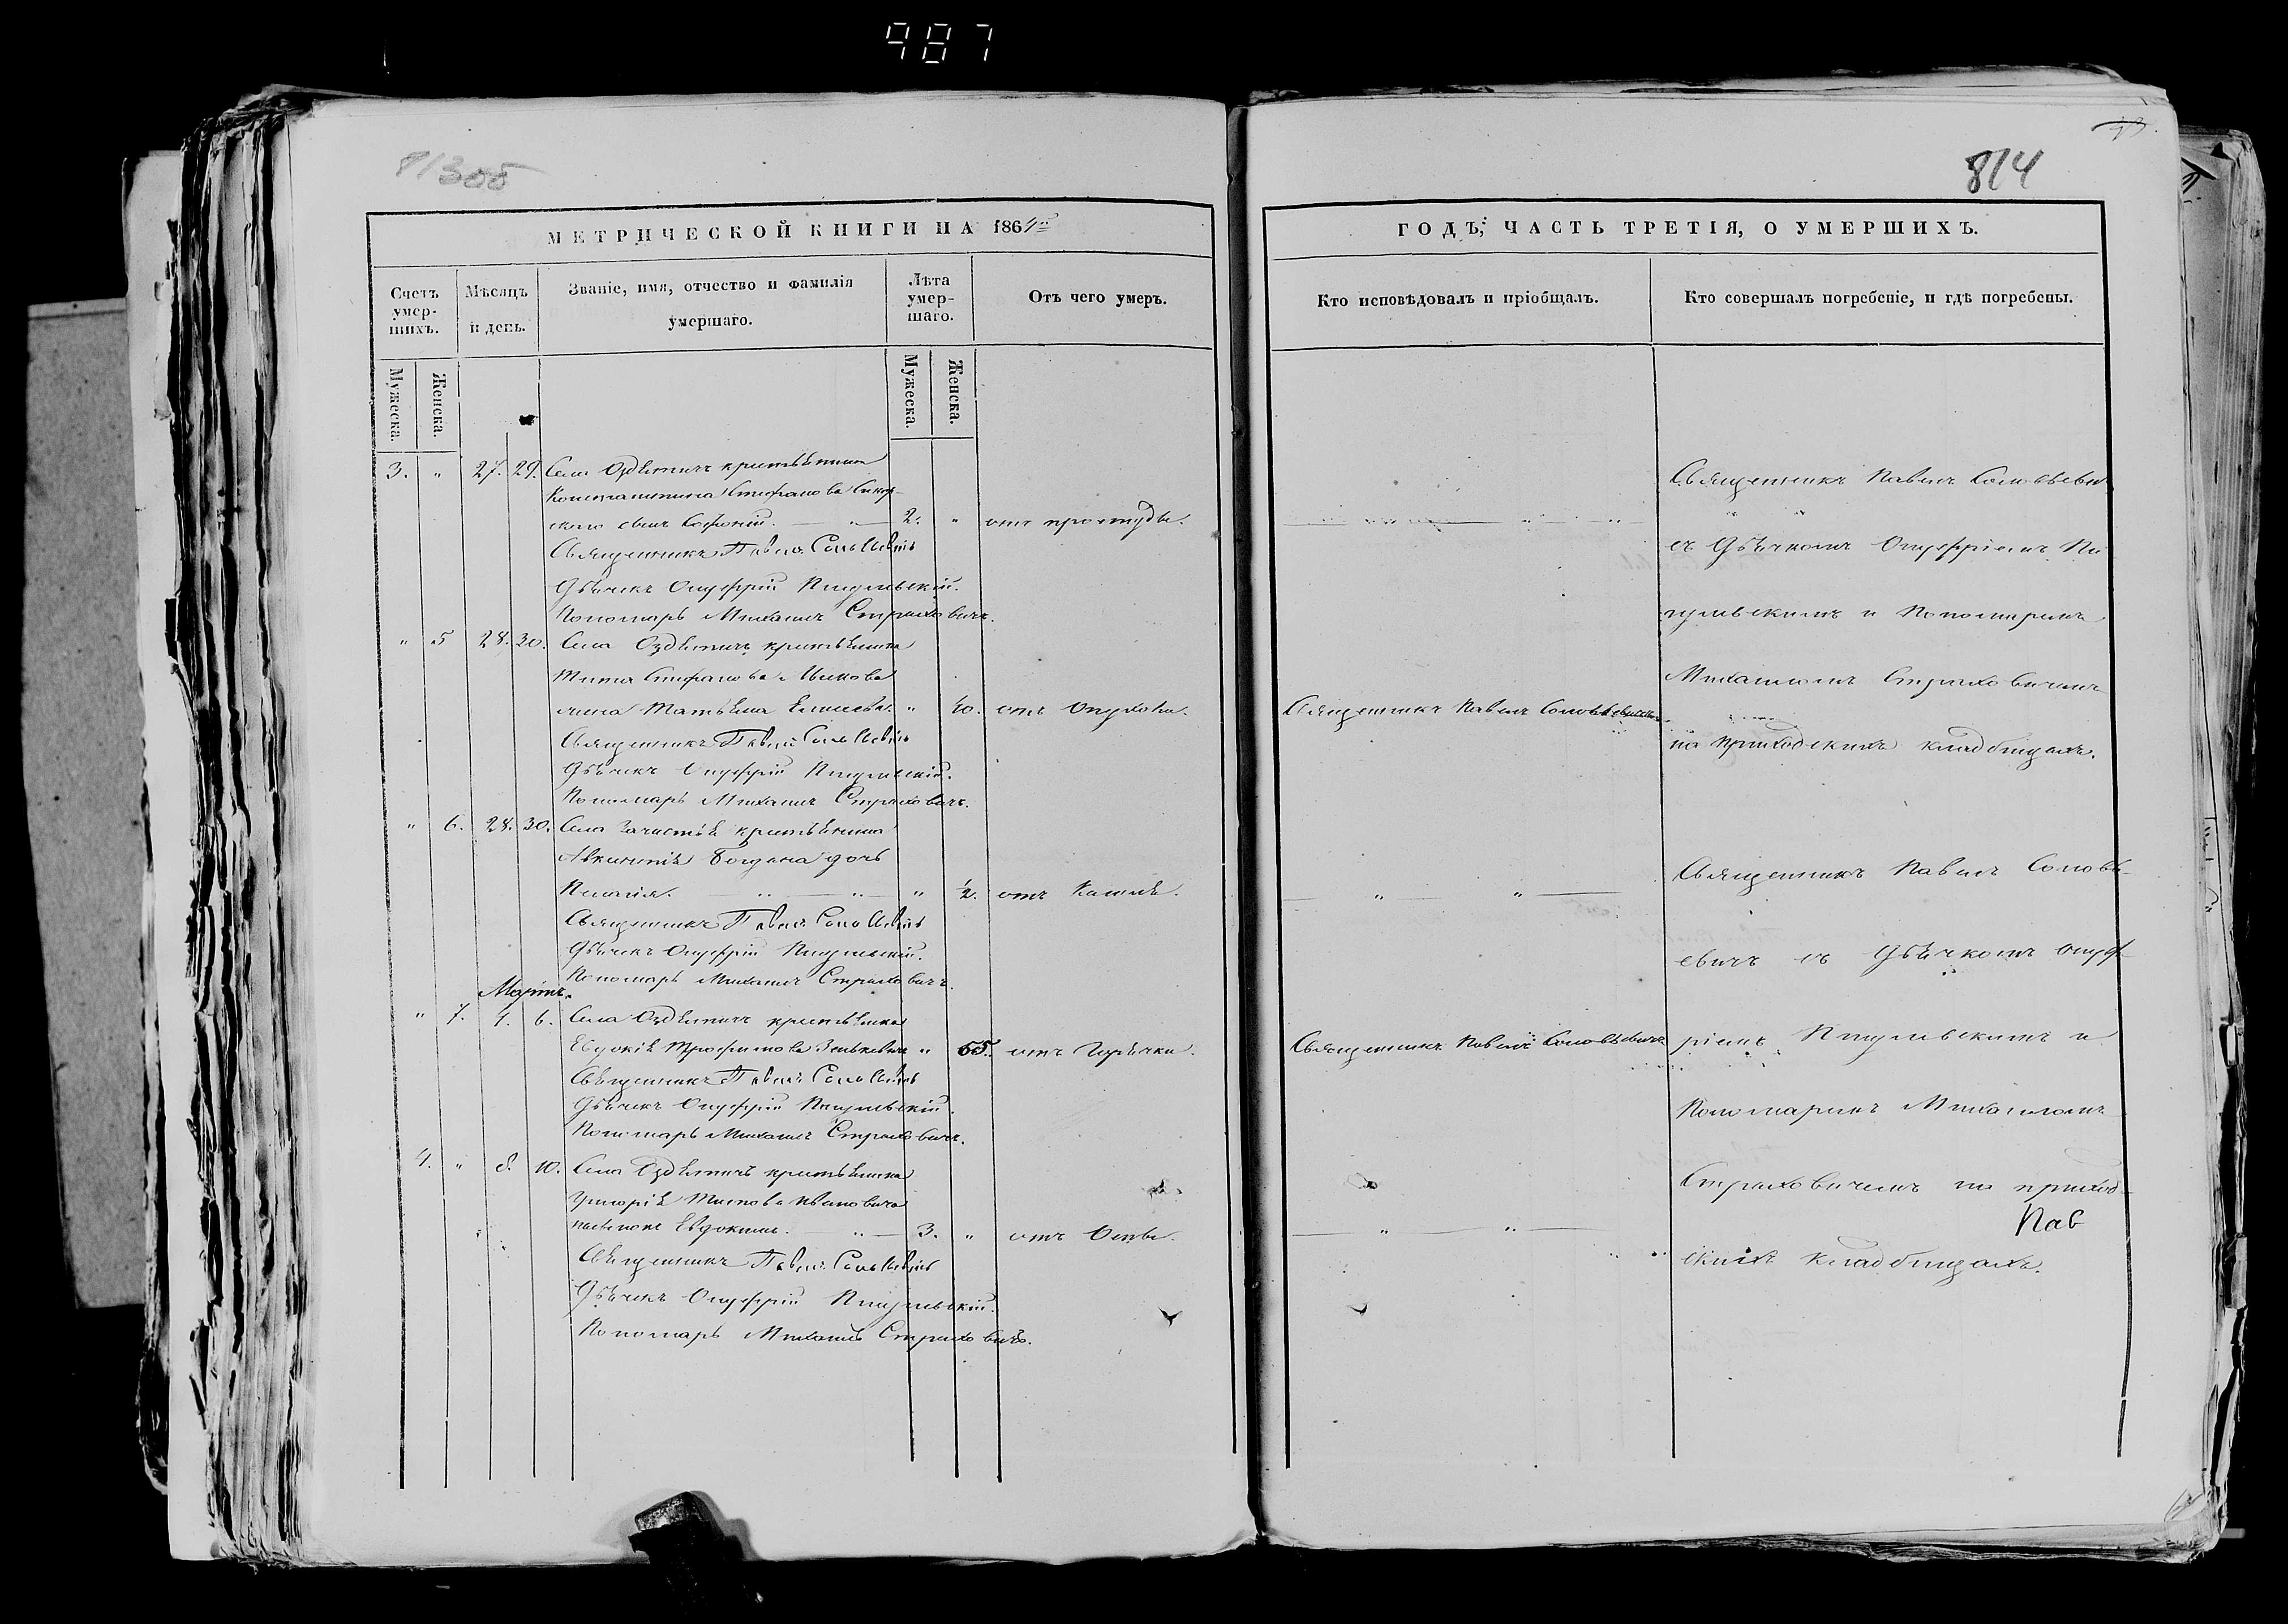 987
814
МЕТРИЧЕСКОЙ КНИГИ НА 1864й
Счетъ умершихъ.
Мѣсяцъ и день.
Званіе, имя, отчество и фамилія умершаго.
Лѣта умершаго.
Отъ чего умеръ.
Мужеска.
Женска.
Мужеска.
Женска.
3. " 27. 29. Села Оздѣтичъ крестьянина
Константина Стефанова
сынъ 2. " отъ простуды.
Священникъ Павелъ Соловьевичъ
Дьячекъ Онуфрій
Пономарь Михаилъ Страховичъ.
" 5 28. 30. Села Оздѣтичъ крестьянина
Тита Стефанова
жена Татьяна " 40. отъ Опухоли.
Священникъ Павелъ Соловьевичъ
Дьячекъ Онуфрій
Пономарь Михаилъ Страховичъ.
" 6. 28. 30. Села Зачистья крестьянина
Богдана дочь
Пелагія. " " " 1/2. отъ Кашля.
Священникъ Павелъ Соловьевичъ
Дьячекъ Онуфрій
Пономарь Михаилъ Страховичъ.
Мартъ.
" 7. 4. 6. Села Оздѣтичъ крестьянка
Евдокія Трофимова " 55. отъ Горячки.
Священникъ Павелъ Соловьевичъ
Дьячекъ Онуфрій
Пономарь Михаилъ Страховичъ.
4. " 8. 10. Села Оздѣтичъ крестьянина
Григорія Титова Ивановича
Евдокимъ. " 3. " отъ Оспы.
Священникъ Павелъ Соловьевичъ
Дьячекъ Онуфрій
Пономарь Михаилъ Страховичъ.
ГОДЪ, ЧАСТЬ ТРЕТІЯ, О УМЕРШИХЪ.
Кто исповѣдовалъ и пріобщалъ.
Кто совершалъ погребеніе, и гдѣ погребены.
Священникъ Павелъ Соловьевичъ
Священникъ Павелъ Соловьевичъ
Священникъ Павелъ Соловьевичъ
съ Дьячкомъ Онуфріемъ
и Пономаремъ
Михаиломъ Страховичемъ
на приходскихъ кладбищахъ.
Священникъ Павелъ Соловь-
евичъ съ Дьячкомъ Онуф-
ріемъ и
Пономаремъ Михаиломъ
Страховичемъ на приход-
Пав
скихъ кладбищахъ.